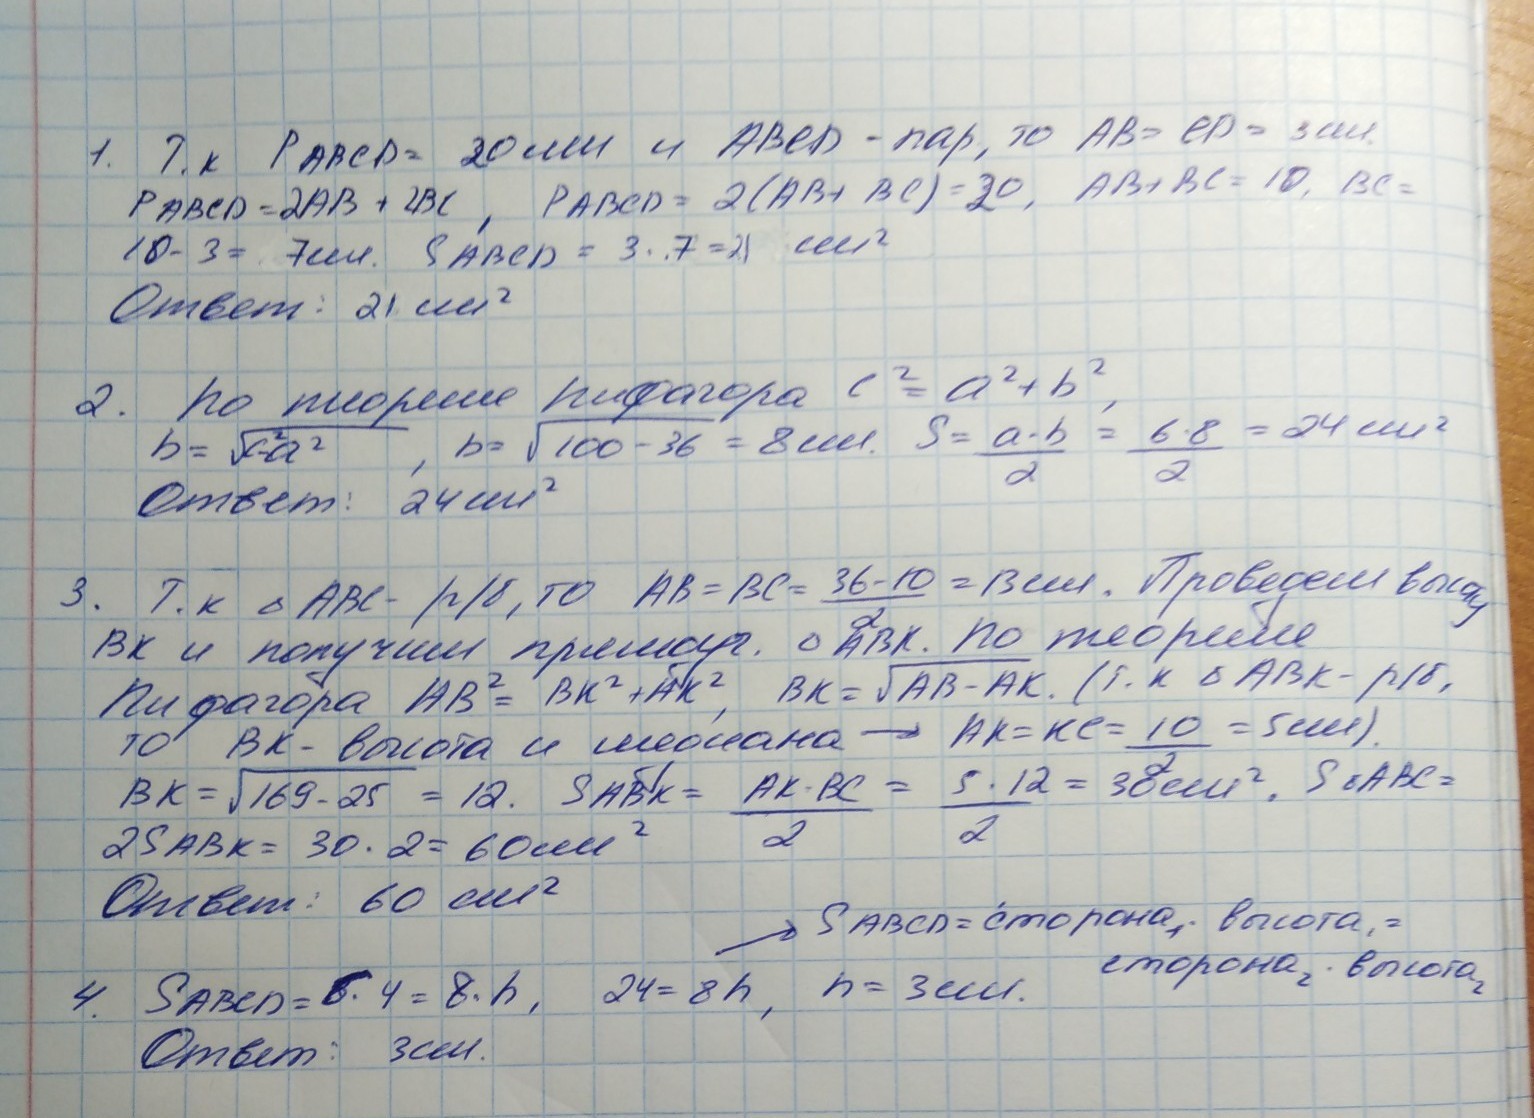 1. Т.к PABCD= 20 см и ABCD - пар, то AB= CD= 3см.
PABCD=2AB + 2BC, PABCD= 2(AB+ BC)=20, AB+BC= 10, BC=
10-3= 7см. SABCD = 3·7=21 см²
Ответ: 21 см²
2. По теореме Пифагора c²= a²+b²,
b= √c²-a², b= √100-36 = 8см. S= a·b/2 = 6·8/2 = 24 см²
Ответ: 24см²
3. Т.к △ABC- р/б, то AB=BC= 36-10/2 =13см. Проведем высоту
BK и получим прямоуг. △ABK. По теореме
Пифагора AB²= BK²+AK², BK= √AB-AK. (т.к △ABK- р/б,
то BK- высота и медиана → AK=KC= 10/2 = 5см).
BK= √169-25 = 12. SABK= AK·BC/2 = 5·12/2 = 30см². S△ABC=
2SABK= 30·2= 60см²
Ответ: 60 см²
→ SABCD= сторона₁· высота₁=
сторона₂· высота₂
4. SABCD= 6·4= 8·h, 24= 8h, h= 3см.
Ответ: 3см.